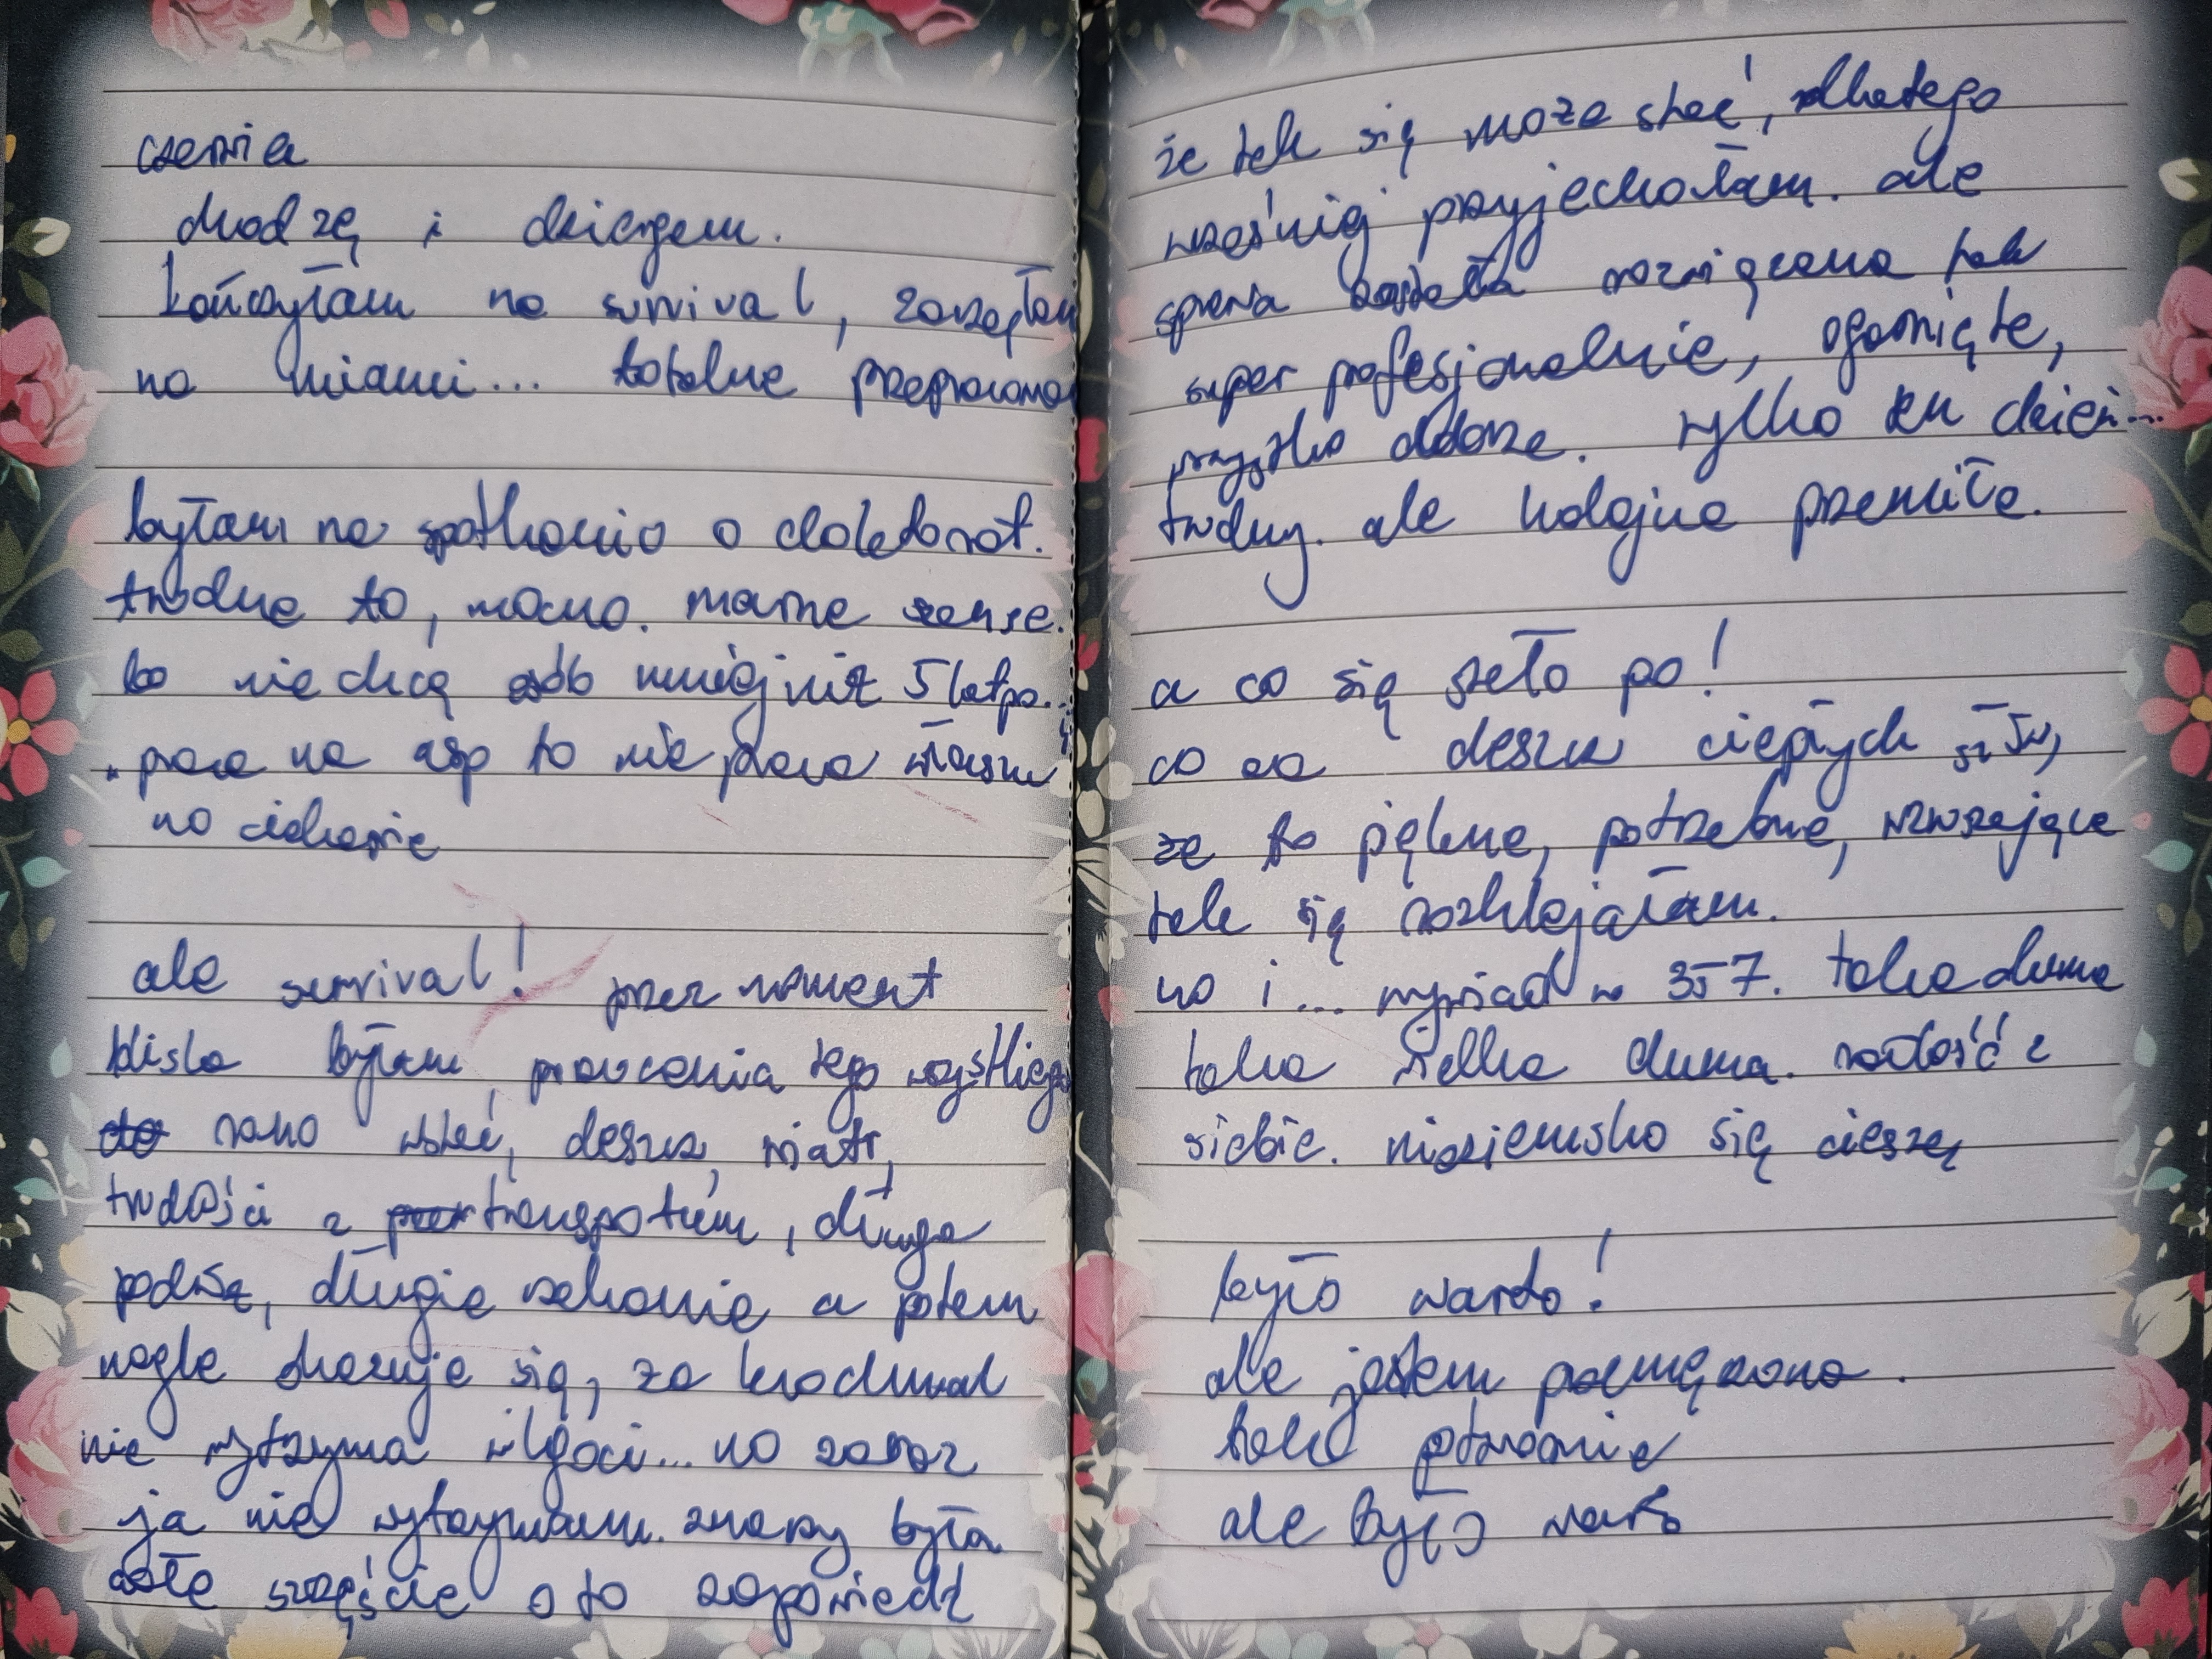 czerwiec
chodzę i dziergam.
kończyłam na survival, zaczęłam
na miami... totalne przepracowa
byłam na spotkaniu o doktorat.
trudne to, mocno. marne szanse.
bo nie chcą osób mniej niż 5 lat po...
"praca na asp to nie praca własna"
no ciekawie
ale survival! przez moment
blisko byłam, porzucenia tego wszystkiego
rano wstać, deszcz, wiatr,
trudości z transportem, długa
podróż, długie czekanie a potem
nagle okazuje się, że
nie wytrzyma wilgoci... no zaraz
ja nie wytrzymam. znaczy była
całe szczęście o to zapowiedź
że tak się może stać, dlatego
wcześniej przyjechałam. ale
sprawa została rozwiązana tak
super profesjonalnie, ogarnięte,
wszystko dobrze. tylko ten dzień...
trudny. ale kolejne przemiłe.
a co się stało po!
co za deszcz ciepłych słów,
że to piękne, potrzebne, wzruszające
tak się rozklejałam.
no i... wywiad w 357. taka duma
taka wielka duma. radość z
siebie. nieziemsko się cieszę
było warto!
ale jestem przemęczona.
tak potwornie
ale było warto